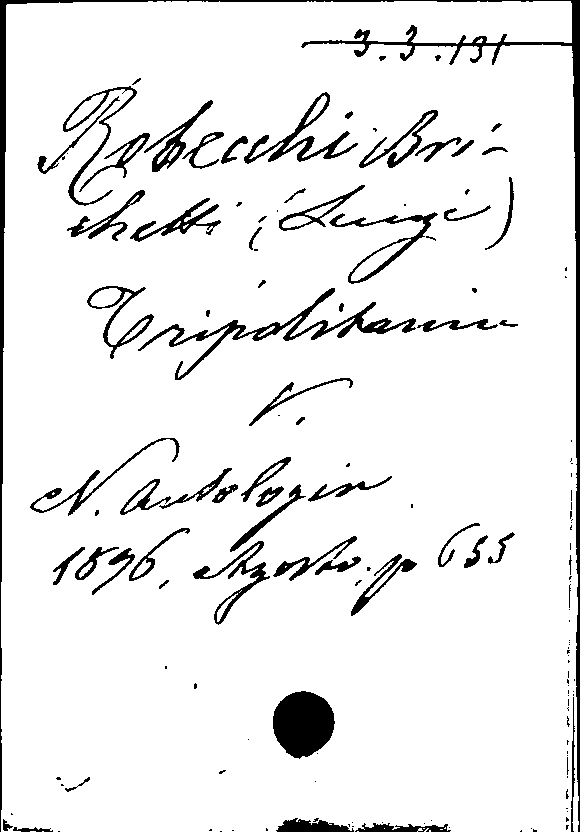 3.3.131
Robecchi Bri-
chetti (Luigi)
Tripolitania
V.
N. Antologia
1896, Agosto, p 655